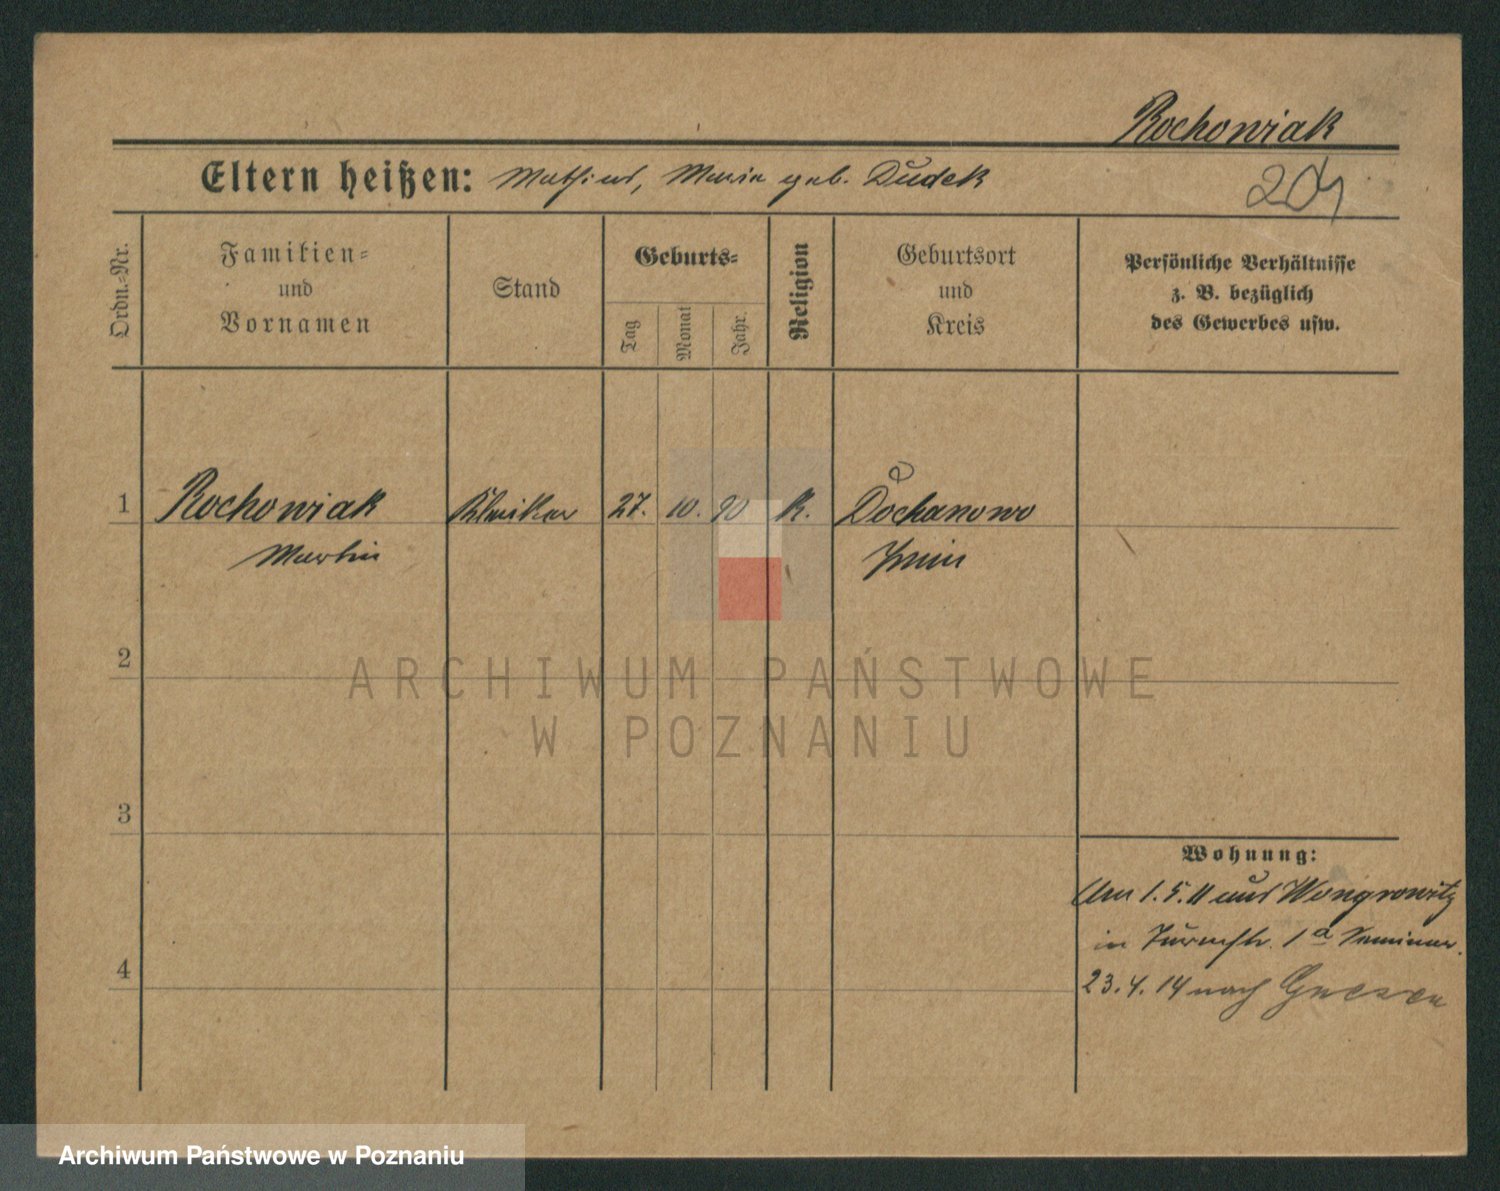 Rochowiak
Eltern heißen: Mathias, Maria geb. Dudek
204
Ordn.-Nr.
Familien-
und
Vornamen
Stand
Geburts-
Tag
Monat
Jahr.
Religion
Geburtsort
und
Kreis
Persönliche Verhältnisse
z. B. bezüglich
des Gewerbes usw.
1 Rochowiak Kleriker 27. 10. 90 K. Dochanowo
Martin Znin
2
ARCHIWUM PAŃSTWOWE
W POZNANIU
3
Wohnung:
Am 1.5.11 aus Wongrowitz
in Turmstr. 1a Seminar.
4
23.4.14 nach Gnesen
Archiwum Państwowe w Poznaniu